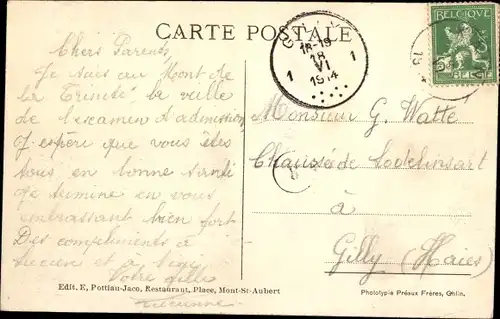 CARTE POSTALE
BELGIQUE
BELGI
18-19
18
VI
1914
1 1
Chers Parents
Je suis au Mont de
la Trinité, la veille
de l'examen d'admission,
J'espère que vous êtes
tous en bonne santé
Je termine en vous
embrassant bien fort
Des compliments à
Lucien et à
Votre fille
Lucienne
Monsieur G. Watté
Chaussée de Lodelinsart
à
Gilly (Haies)
Edit. E, Pottiau-Jaco, Restaurant, Place, Mont-St-Aubert
Phototypie Préaux Frères, Ghlin.